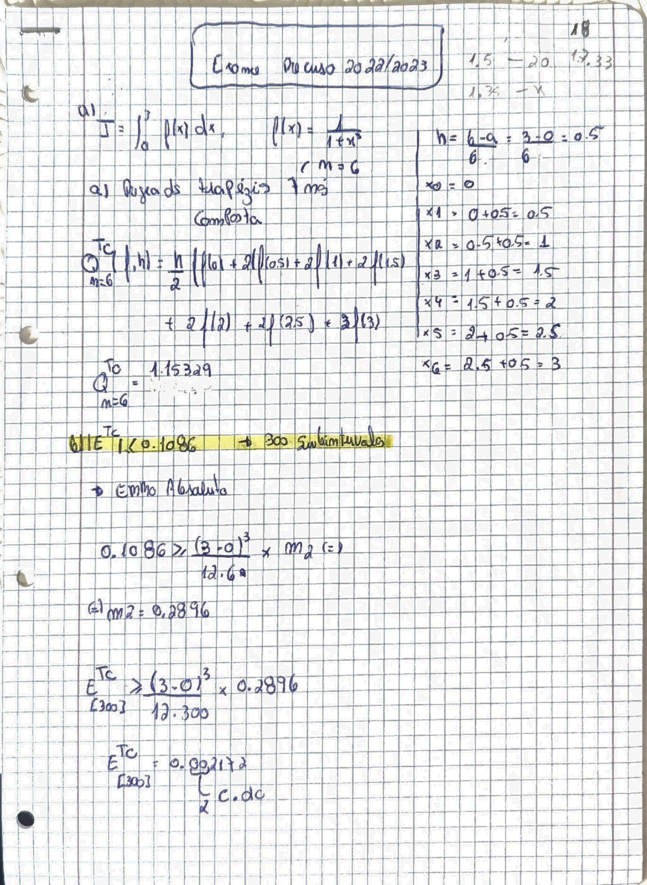 18
Exame Recurso 2022/2023
1.5 — 20 17.33
1.35 — x
a) I = ∫₀³ f(x) dx, f(x) = 1/(1+x³)
, m=6
a) Regra do trapézio 7 nós
Composta
Q^Tc_m=6 (f,h) = h/2 (f(0) + 2(f(0.5) + 2f(1) + 2f(1.5)
+ 2f(2) + 2f(2.5) + 3f(3)
Q^Tc_m=6 = 1.15329
h = (b-a)/6 = (3-0)/6 = 0.5
x0 = 0
x1 = 0+0.5 = 0.5
x2 = 0.5+0.5 = 1
x3 = 1+0.5 = 1.5
x4 = 1.5+0.5 = 2
x5 = 2+0.5 = 2.5
x6 = 2.5+0.5 = 3
b) |E^Tc| < 0.1086 → 300 Subintervalos
→ Erro Absoluto
0.1086 ≥ (3-0)³/12.6² × m2 (=)
(=) m2 = 0.2896
E^Tc_[300] ≥ (3-0)³/12.300 × 0.2896
E^Tc_[300] = 0.002172
2 c.dc